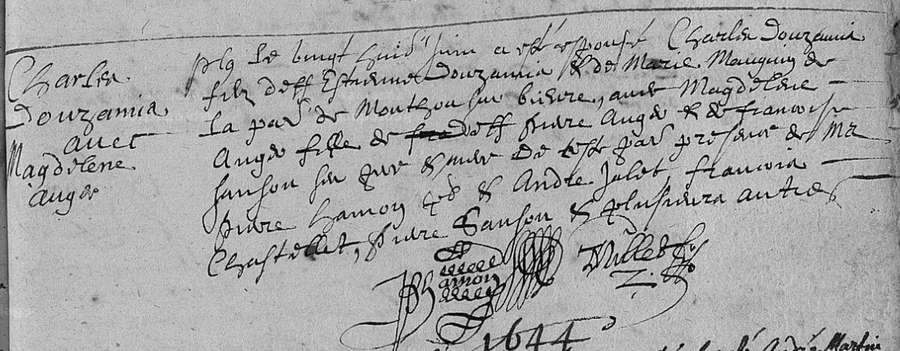 Charles
Douzamia
avec
Magdelene
Auger
Plg le vingt huict Juin a esté espousé Charles Douzamia
filz deff Estienne Douzamia & de Marie Mauguin de
la par de Monthou sur bievre, avec Magdelene
Auger fille de deff pierre Auger & de francoise
Sanson ses pere & mere de ceste par presence de Mr
pierre hamon & André Jolet francois
Chastellet, pierre Sanson & plusieurs autres
P hamon
Villedr
1644
André Martin